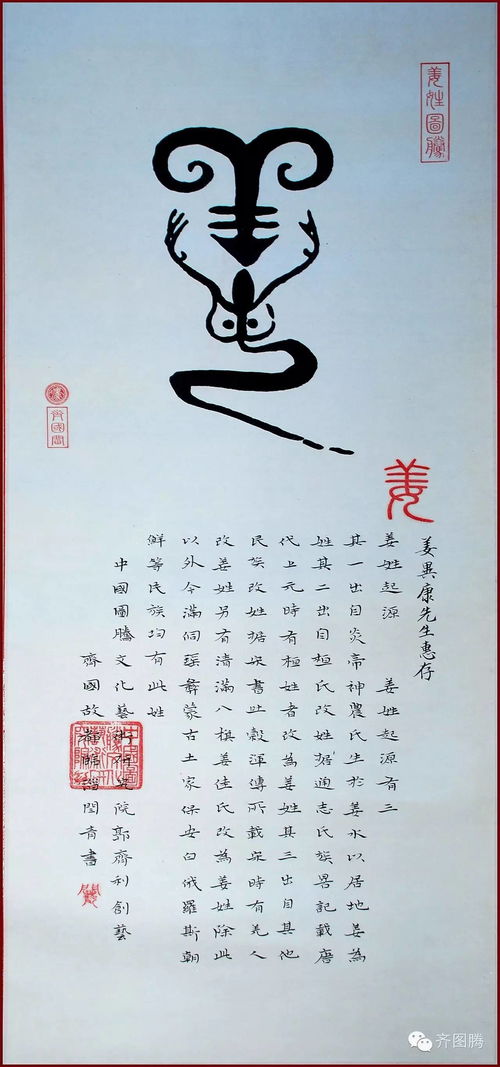 姜姓圖騰
姜
姜異康先生惠存
姜姓起源 姜姓起源有三
其一出自炎帝神農氏生於姜水以居地姜為
姓其二出自桓氏改姓据通志氏族畧記載唐
代上元時有桓姓者改為姜姓其三出自其他
民族改姓据宋書吐穀渾傳所載宋時有羌人
改姜姓另有清滿八旗姜佳氏改為姜姓除此
以外今滿侗瑶彝蒙古土家保安白俄羅斯朝
鮮等民族均有此姓
中國圖騰文化藝術研究院郭齊利創藝
齊國故都臨淄閆青書
齐图腾